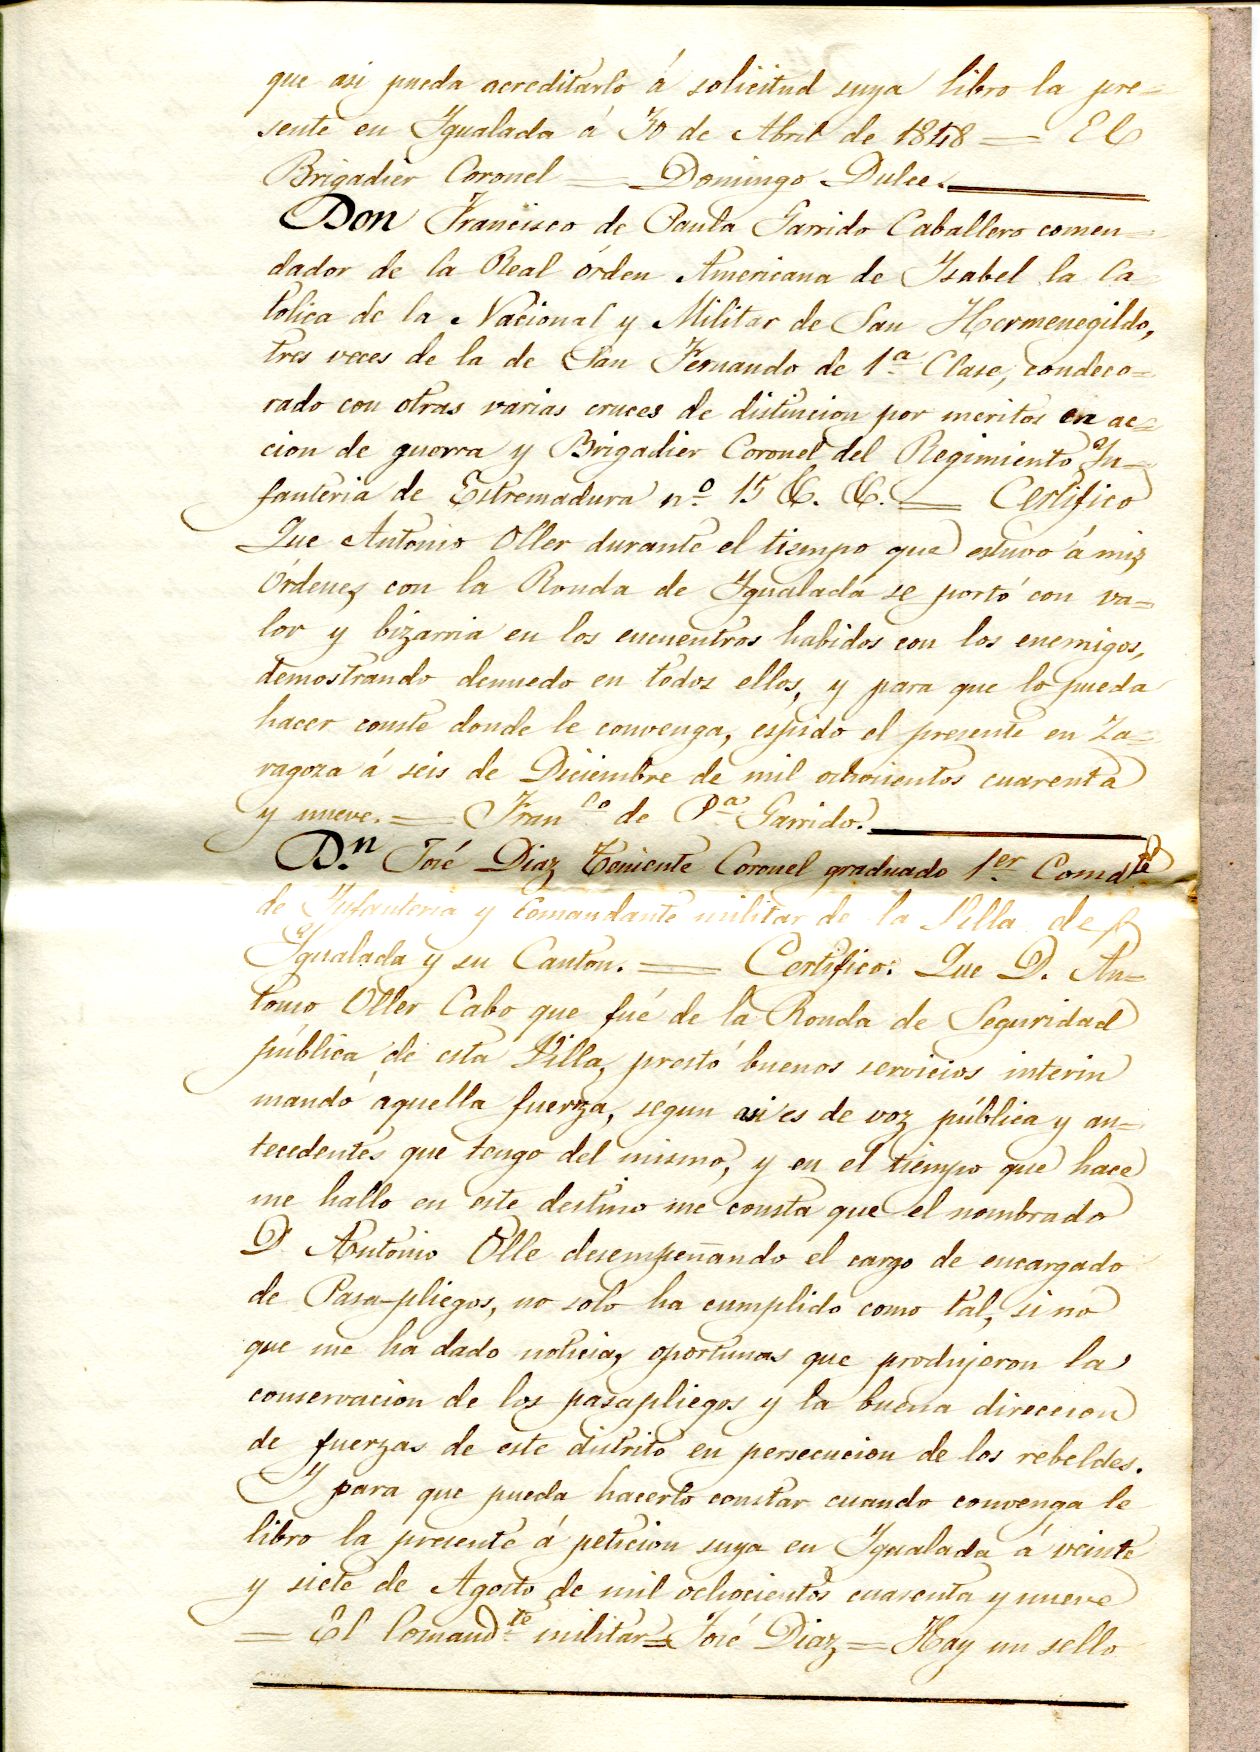 que asi pueda acreditarlo á solicitud suya libro la pre=
sente en Ygualada á 30 de Abril de 1848 = El
Brigadier Coronel = Domingo Dulce.
Don Francisco de Paula Garrido Caballero comen=
dador de la Real órden Americana de Ysabel la Ca
tólica de la Nacional y Militar de San Hermenegildo,
tres veces de la de San Fernando de 1.ª Clase, condeco=
rado con otras varias cruces de distincion por meritos en ac=
cion de guerra y Brigadier Coronel del Regimiento Yn=
fanteria de Estremadura nº 15 &. &. = Certifico
Que Antonio Oller durante el tiempo que estuvo á mis
órdenes con la Ronda de Ygualada se portó con va=
lor y bizarria en los encuentros habidos con los enemigos,
demostrando denuedo en todos ellos, y para que lo pueda
hacer conste donde le convenga, espido el presente en Za=
ragoza á seis de Diciembre de mil ochocientos cuarenta
y nueve. = Fran.co de P.a Garrido.
D.n José Diaz Teniente Coronel graduado 1.er Comd.te
de Ynfanteria y Comandante militar de la Villa de
Ygualada y su Canton. = Certifico: Que D. An=
tonio Oller Cabo que fué de la Ronda de Seguridad
pública de esta Villa, prestó buenos servicios interin
mandó aquella fuerza, segun asi es de voz pública y an=
tecedentes que tengo del mismo, y en el tiempo que hace
me hallo en este destino me consta que el nombrado
D. Antonio Olle desempeñando el cargo de encargado
de Pasa-pliegos, no solo ha cumplido como tal, si no
que me ha dado noticias oportunas que produjeron la
conservacion de los pasapliegos y la buena direccion
de fuerzas de este distrito en persecucion de los rebeldes.
Y para que pueda hacerlo constar cuando convenga le
libro la presente á peticion suya en Ygualada á veinte
y siete de Agosto de mil ochocientos cuarenta y nueve
= El Comand.te militar = José Diaz = Hay un sello